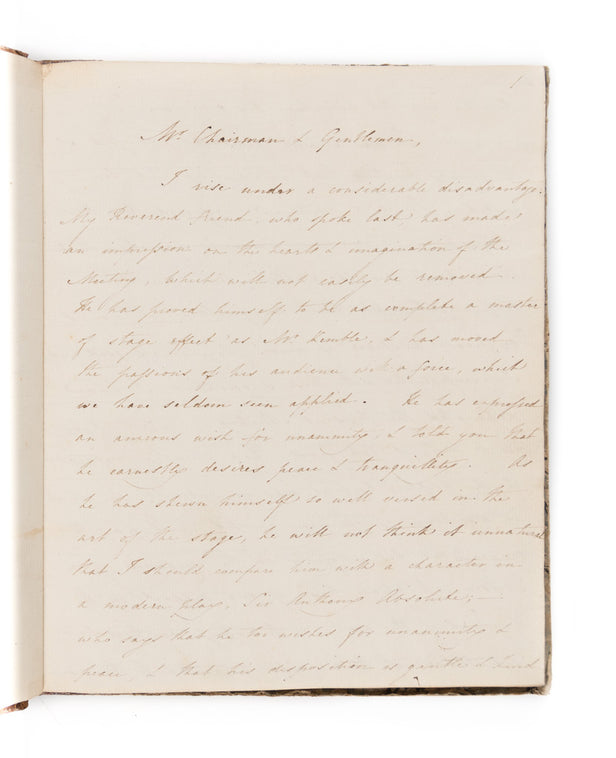 1
Mr Chairman & Gentlemen,
I rise under a considerable disadvantage.
My Reverend friend, who spoke last, has made
an impression on the hearts & imagination of the
Meeting, which will not easily be removed.
He has proved himself to be as complete a master
of stage effect as Mr Kemble, & has moved
the passions of his audience with a force, which
we have seldom seen applied. He has expressed
an anxious wish for unanimity, & told you that
he earnestly desires peace & tranquillity. As
he has shewn himself so well versed in the
art of the stage, he will not think it unnatural
that I should compare him with a character in
a modern play, Sir Anthony Absolute; —
who says that he too wishes for unanimity &
peace, & that his disposition is gentle & kind